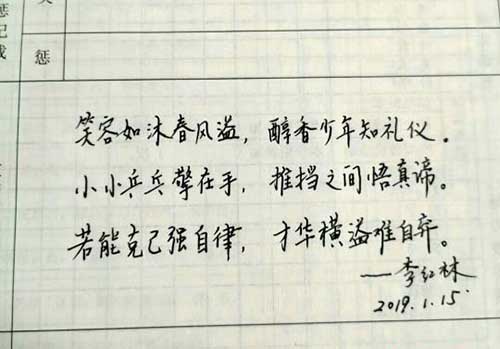 惩
笑容如沐春风溢，醇香少年知礼仪。
小小乒乓擎在手，推挡之间悟真谛。
若能克己强自律，才华横溢难自弃。
——李红林
2019.1.15